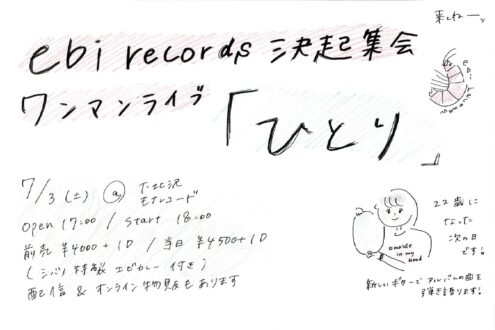 来てねーッ
ebi records 決起集会
ワンマンライブ
「ひとり」
ebi
7/3 (土) @ 下北沢
モナレコード
open 17:00 / start 18:00
前売 ¥4000+1D / 当日 ¥4500+1D
(シバノ特製 エビカレー付き)
配信 & オンライン物販もあります
outside
in my
head
22歳に
なった
次の日
です!
新しいギターで アルバムの曲を
弾き語ります!